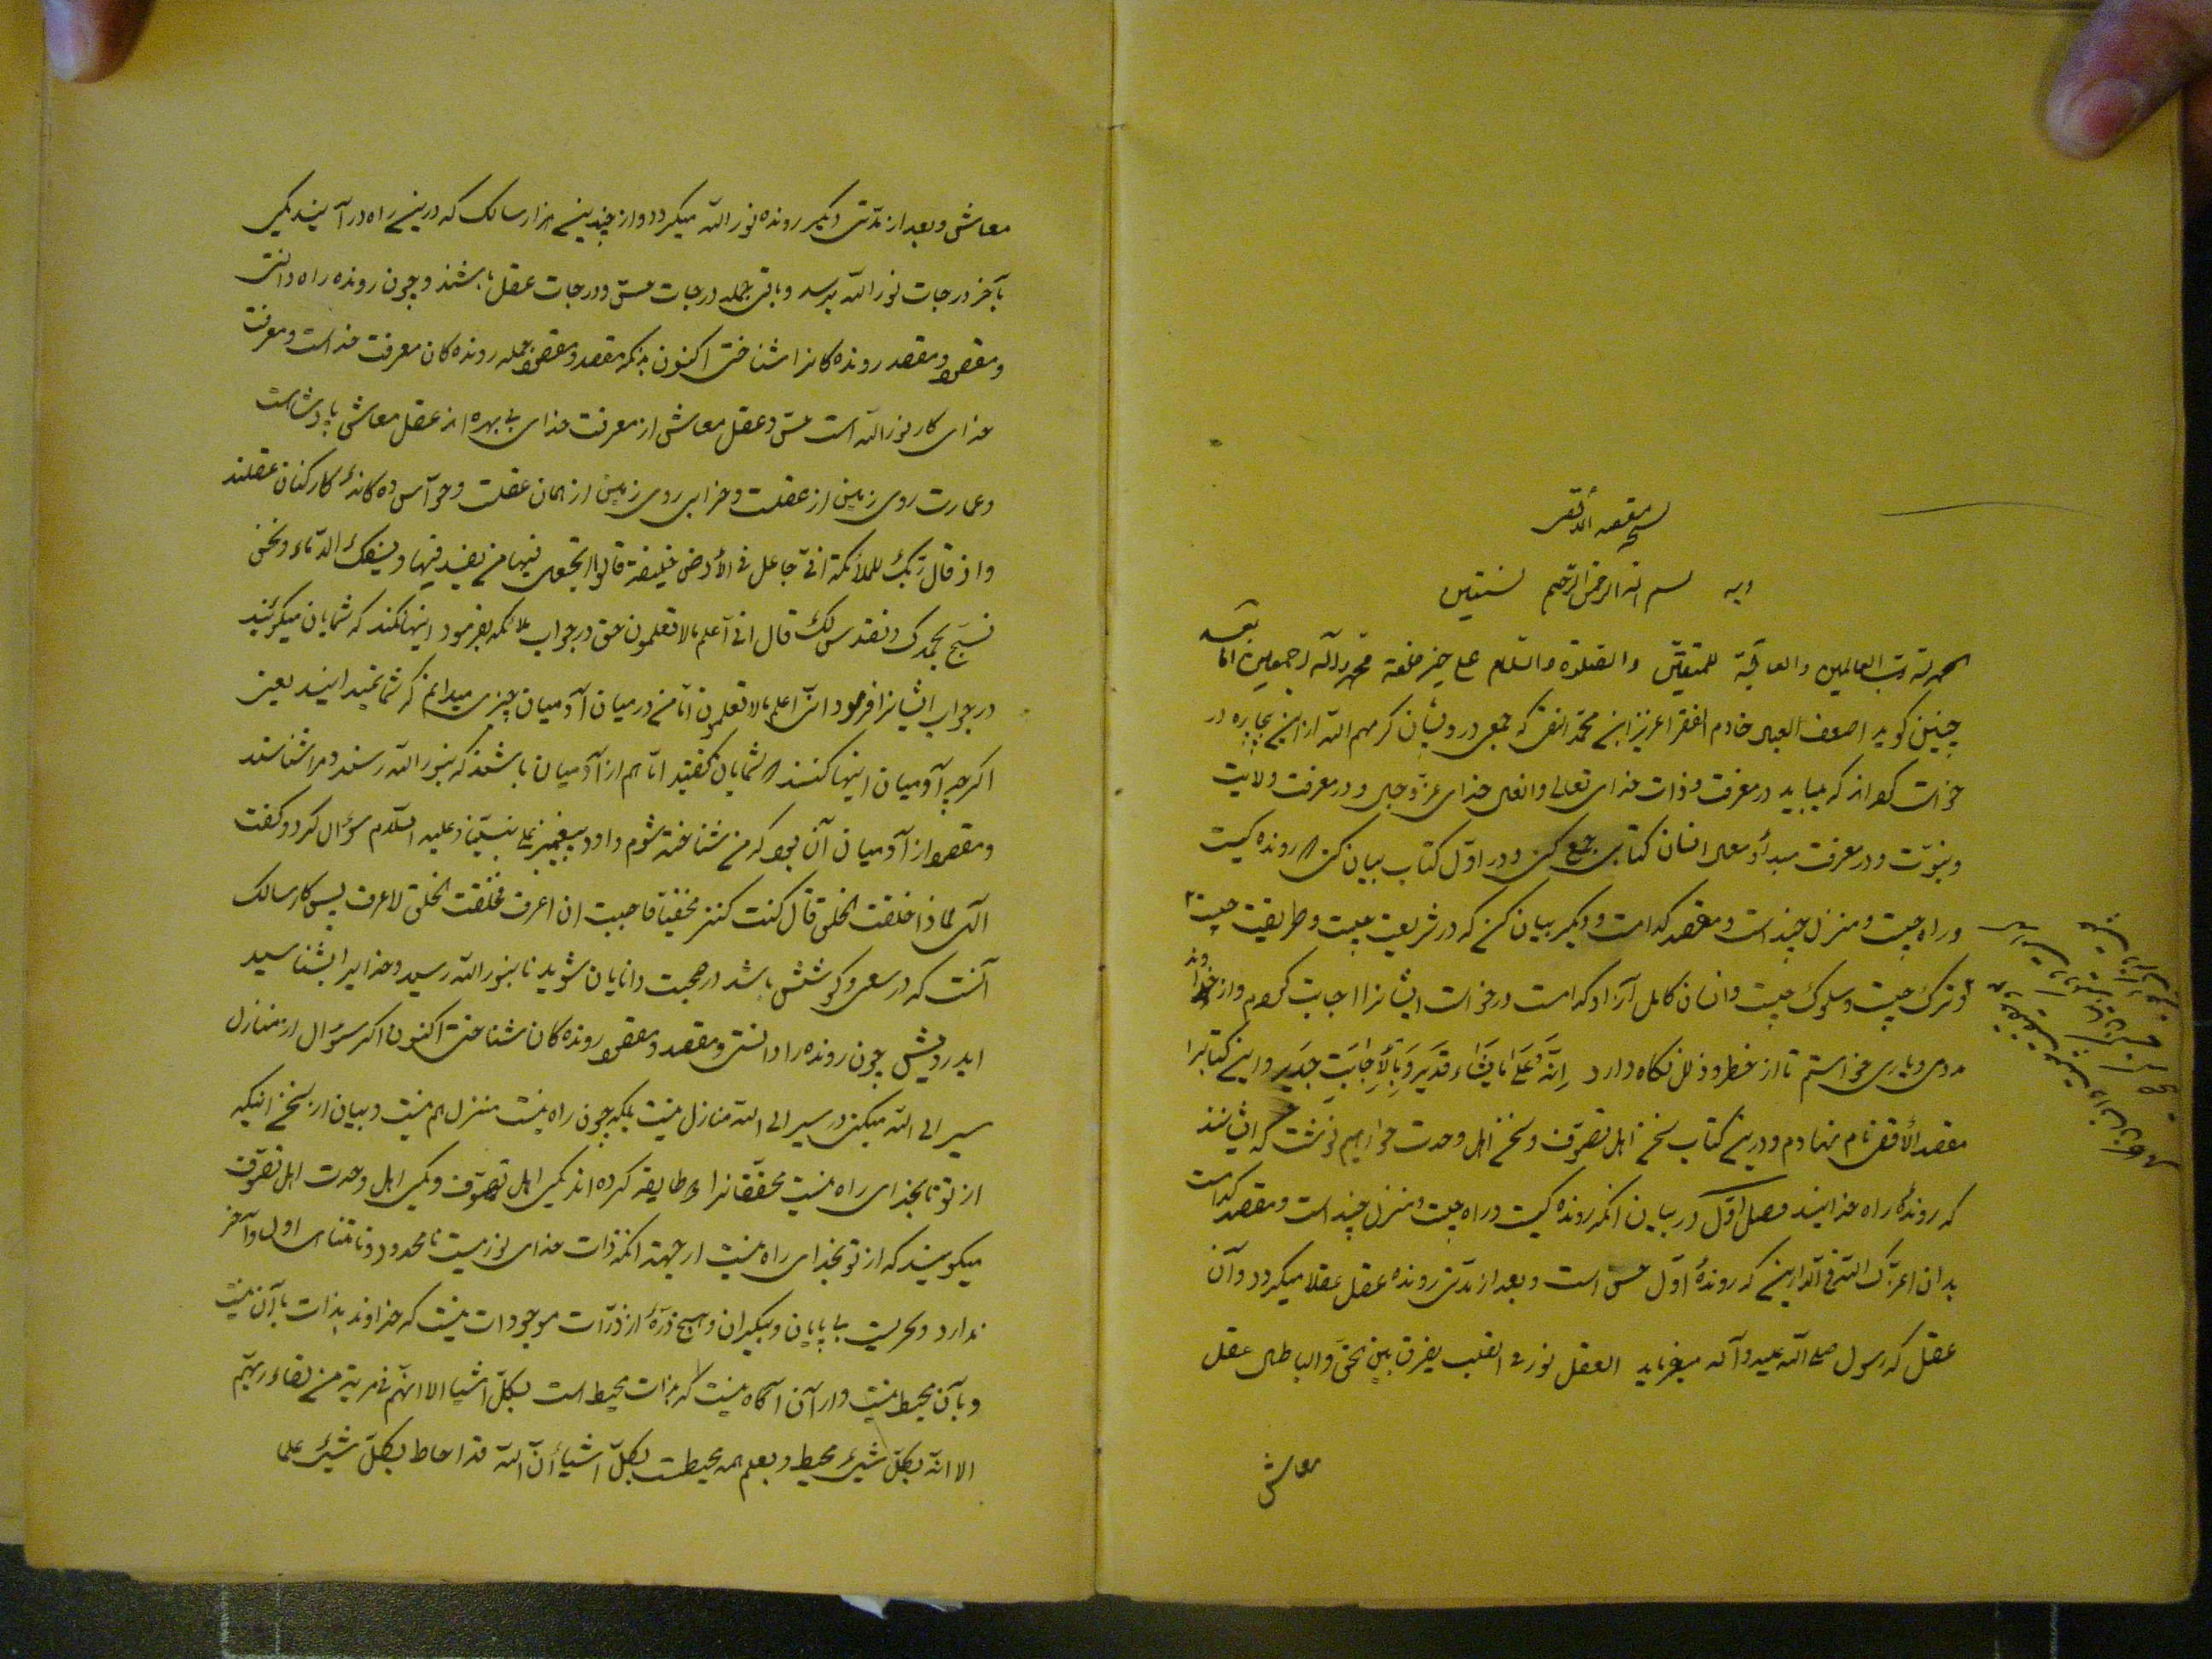 نسخه مقصد الأقصی
وبه بسم الله الرحمن الرحیم نستعین
الحمد لله رب العالمین والعاقبة للمتقین والصلوة والسلام علی خیر خلقه محمد وآله اجمعین اما بعد
چنین گوید اضعف العباد خادم الفقرا عزیز ابن محمد النفسی که جمعی درویشان کرمهم الله از این بیچاره در
خواست کردند که میباید در معرفت ذات خدای تعالی و افعال خدای عز و جل و در معرفت ولایت
و نبوت و در معرفت مبدأ و معاد انسان کتابی جمع کن و در اول کتاب بیان کن که رونده کیست
و راه چیست و منزل چند است و مقصد کدامست و دیگر بیان کن که در شریعت چیست و طریقت چیست
و ترک چیست و سلوک چیست و انسان کامل آزاد کدامست درخواست ایشانرا اجابت کردم و از خداوند
مددی و یاری خواستم تا از خطر و ذلل نگاه دارد اِنَّهُ عَلی مایَشاء قَدیر وَبِالأِجابَتِ جَدیر و این کتابرا
مقصد الأقصی نام نهادم و درین کتاب سخن اهل تصوف و سخن اهل وحدت خواهیم نوشت که ایشانند
که روندۀ راه خدایند فصل اول در بیان آنکه رونده کیست و راه چیست و منزل چند است و مقصد کدامست
بدان اعزک الله فی الدارین که روندۀ اول حس است و بعد از مدتی رونده عقل میگردد و آن
عقل که رسول صلی الله علیه و آله میفرماید العقل نور فی القلب یفرق بین الحق و الباطل عقل
معاش
معاش و بعد از مدتی دیگر رونده نور الله میگردد و از چندین هزار سالک که درین راه در آیند یکی
بآخر درجات نور الله برسد و باقی جمله درجات حس و درجات عقل باشند و چون رونده راه دانستی
و مقصود و مقصد رونده کانرا شناختی اکنون بدانکه مقصد و مقصود جمله رونده کان معرفت خداست و معرفت
خدای کار نور الله است حس و عقل معاش از معرفت خدای بی بهره اند عقل معاش پادشاست
و عمارت روی زمین از عقلست و خرابی روی زمین از همان عقلست و حواس ده کانۀ کارکنان عقلند
و اذ قال ربک للملائکة انی جاعل فی الأرض خلیفة قالوا اتجعل فیها من یفسد فیها و یسفک الدماء و نحن
نسبح بحمدک و نقدس لک قال انی اعلم مالا تعلمون حق در جواب ملائکه بفرمود اینها نکنند که شمایان میگوئید
در جواب ایشانرا فرمود انی اعلم مالا تعلمون تا من در میان آدمیان چیزی میدانم که شما نمیدانید یعنی
اگر چه آدمیان اینها کنند که شمایان گفتید اما هم از آدمیان باشند که بنور الله رسند و مرا شناسند
و مقصود از آدمیان آن بود که من شناخته شوم داود پیغمبر علی نبینا و علیه السلام سؤال کرد و گفت
الهی لماذا خلقت الخلق قال کنت کنزا مخفیا فاحببت ان اعرف فخلقت الخلق لاعرف پس کار سالک
آنست که در سعی و کوشش باشد در صحبت دانایان شوید تا بنور الله رسید و خدایرا بشناسید
ایدرویش چون رونده را دانستی و مقصد و مقصود رونده کان شناختی اکنون اگر سؤال از منازل
سیر الی الله میکنی در سیر الی الله منازل نیست بلکه چون راه نیست منزل هم نیست و بیان از سخن آنکه
از تو تا بخدای راه نیست محققانرا دو طایفه کرده اند یکی اهل تصوف و یکی اهل وحدت اهل تصوف
میگویند که از تو بخدای راه نیست از جهة آنکه ذات خدای نوریست نامحدود و نامتناهی اول و آخر
ندارد و بحریست بی پایان و بیکران و هیچ ذرۀ از ذرات موجودات نیست که خداوند بذات با آن نیست
و بآن محیط نیست و از آن آگاه نیست که بذات محیط است بکل اشیا الا انهم فی مریة من لقاء ربهم
الا انه بکل شیء محیط و بعلم هم محیطست بکل اشیاء ان الله قد احاط بکل شیء علما